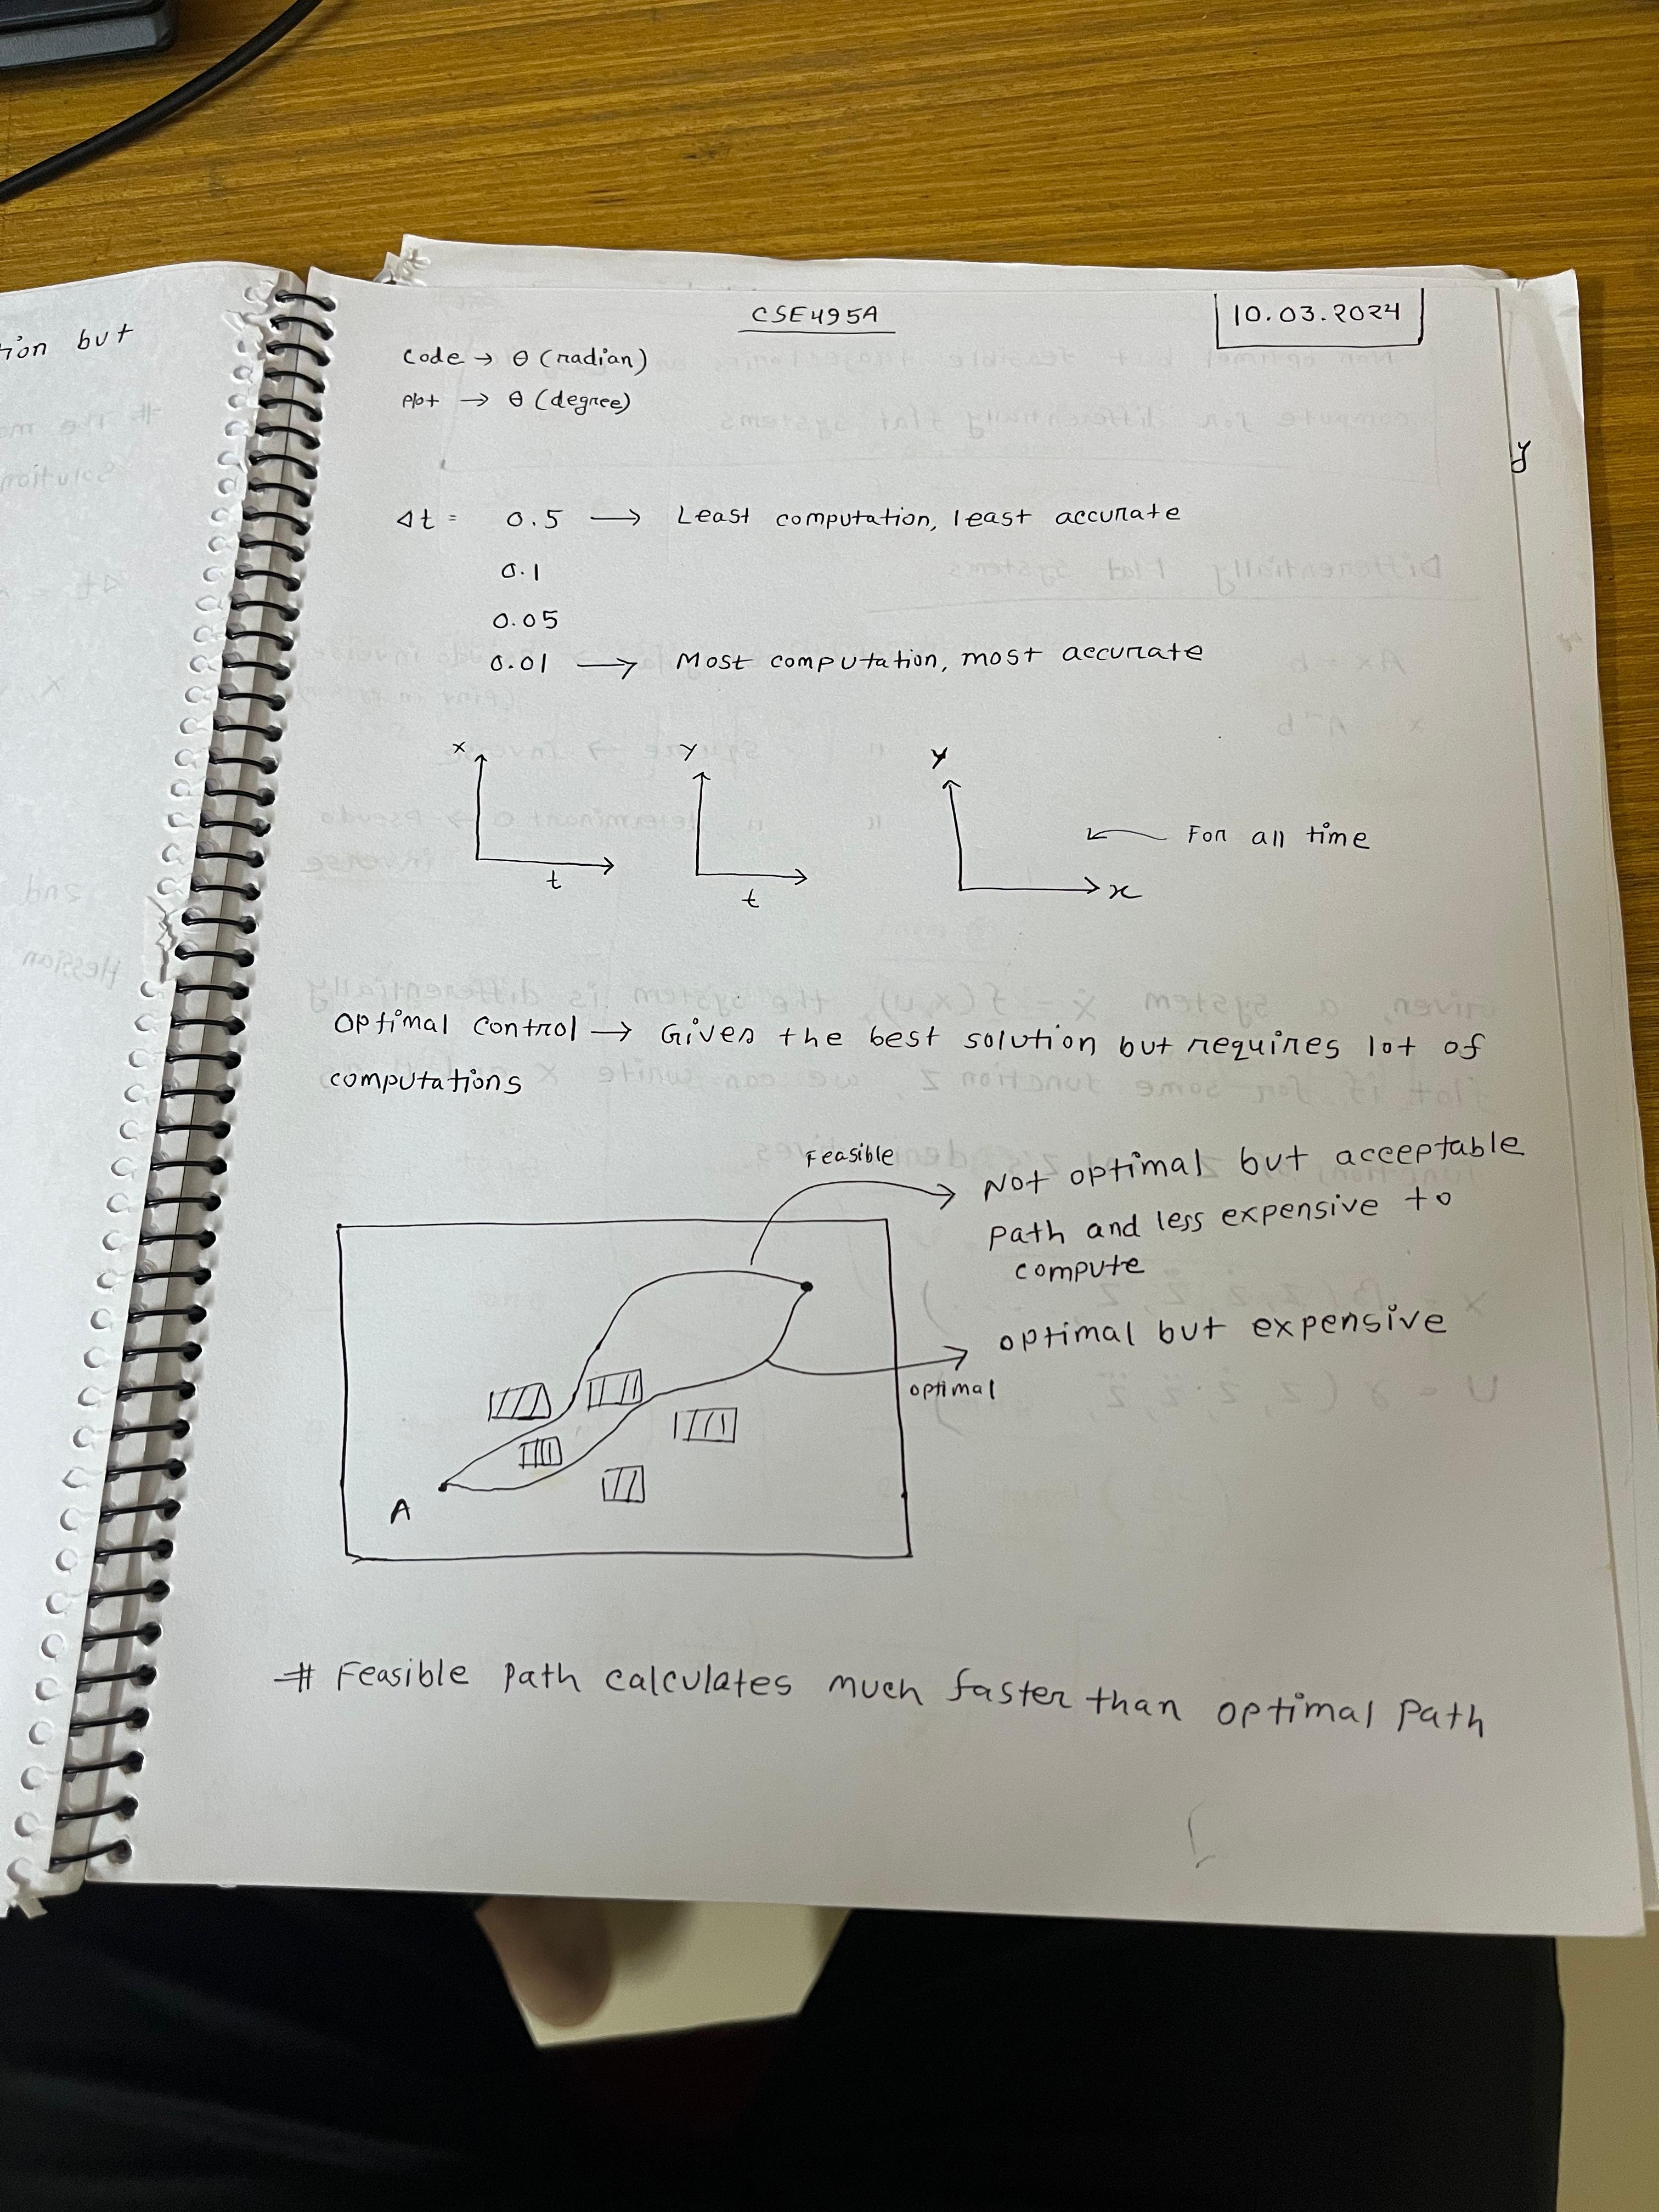 CSE495A
10.03.2024
Code → θ (radian)
Plot → θ (degree)
Δt = 0.5 → Least computation, least accurate
0.1
0.05
0.01 → Most computation, most accurate
x
t
Y
t
Y
x
For all time
Optimal control → Gives the best solution but requires lot of
computations
Feasible
Not optimal but acceptable
path and less expensive to
compute
optimal but expensive
optimal
A
# Feasible path calculates much faster than optimal path
but
y